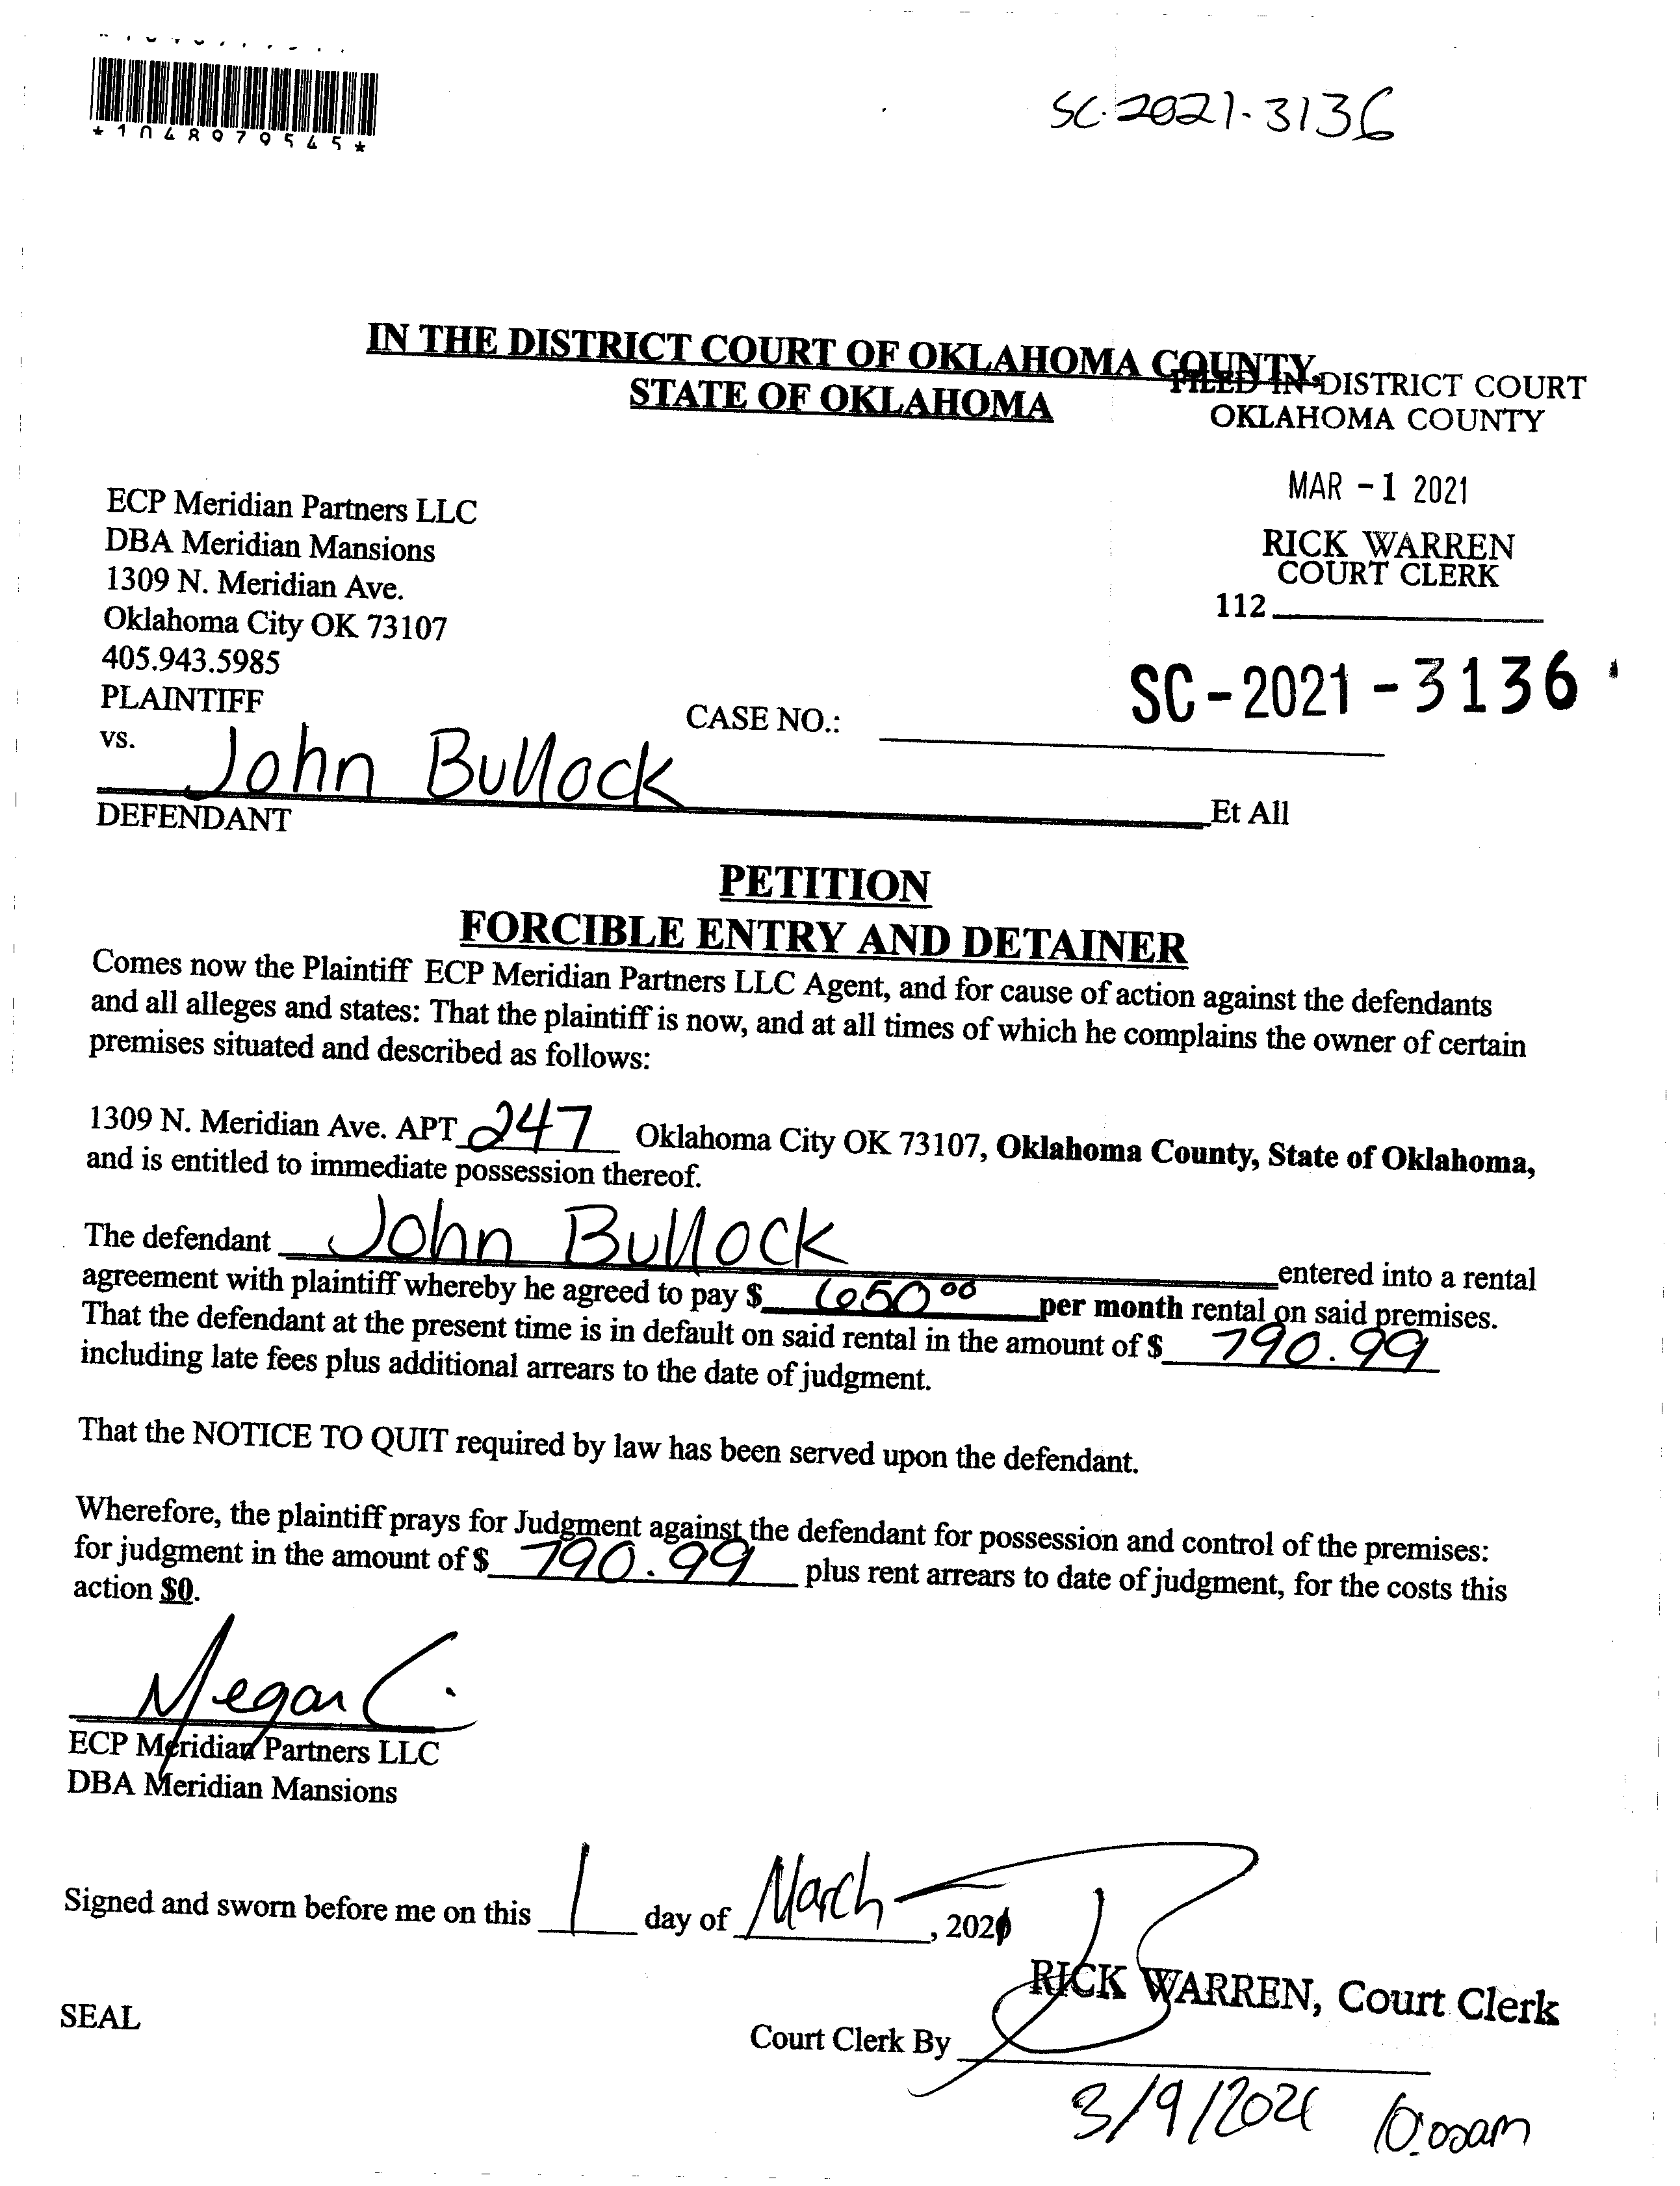 *1048979545*
SC-2021-3136
IN THE DISTRICT COURT OF OKLAHOMA COUNTY,
STATE OF OKLAHOMA
FILED IN DISTRICT COURT
OKLAHOMA COUNTY
MAR -1 2021
RICK WARREN
COURT CLERK
112
SC-2021-3136
ECP Meridian Partners LLC
DBA Meridian Mansions
1309 N. Meridian Ave.
Oklahoma City OK 73107
405.943.5985
PLAINTIFF
CASE NO.:
vs.
John Bullock Et All
DEFENDANT
PETITION
FORCIBLE ENTRY AND DETAINER
Comes now the Plaintiff ECP Meridian Partners LLC Agent, and for cause of action against the defendants
and all alleges and states: That the plaintiff is now, and at all times of which he complains the owner of certain
premises situated and described as follows:
1309 N. Meridian Ave. APT 247 Oklahoma City OK 73107, Oklahoma County, State of Oklahoma,
and is entitled to immediate possession thereof.
The defendant John Bullock entered into a rental
agreement with plaintiff whereby he agreed to pay $ 650.00 per month rental on said premises.
That the defendant at the present time is in default on said rental in the amount of $ 790.99
including late fees plus additional arrears to the date of judgment.
That the NOTICE TO QUIT required by law has been served upon the defendant.
Wherefore, the plaintiff prays for Judgment against the defendant for possession and control of the premises:
for judgment in the amount of $ 790.99 plus rent arrears to date of judgment, for the costs this
action $0.
Megan C.
ECP Meridian Partners LLC
DBA Meridian Mansions
Signed and sworn before me on this 1 day of March, 2021
RICK WARREN, Court Clerk
SEAL
Court Clerk By
3/9/2021 10:00am